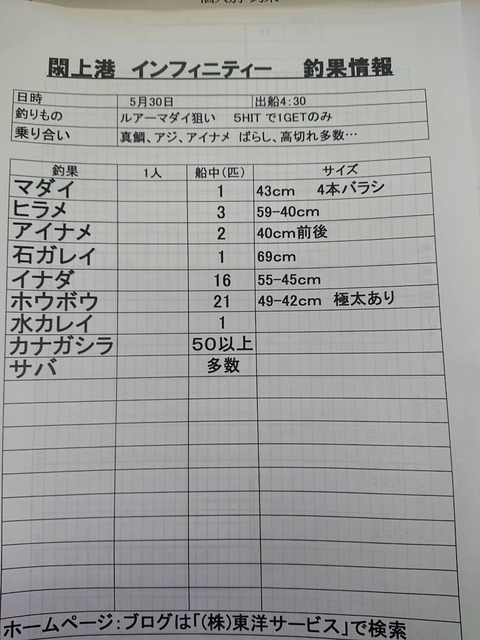 閖上港 インフィニティー 釣果情報
日時 5月30日 出船4:30
釣りもの ルアーマダイ狙い 5HITで1GETのみ
乗り合い 真鯛、アジ、アイナメ ばらし、高切れ多数…
釣果 1人 船中(匹) サイズ
マダイ 1 43cm 4本バラシ
ヒラメ 3 59-40cm
アイナメ 2 40cm前後
石ガレイ 1 69cm
イナダ 16 55-45cm
ホウボウ 21 49-42cm 極太あり
水カレイ 1
カナガシラ 50以上
サバ 多数
ホームページ:ブログは「(株)東洋サービス」で検索